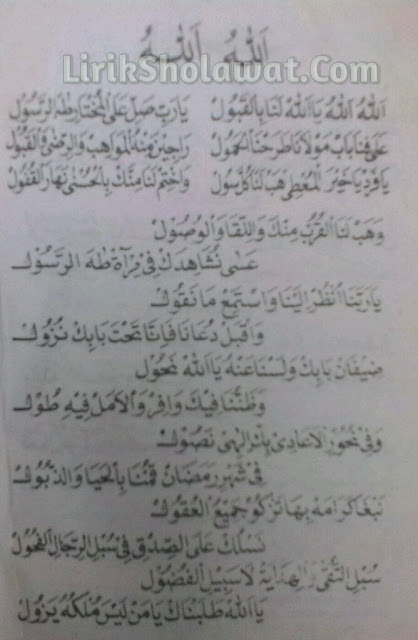 اَللهُ اَللهُ
LirikSholawat.Com
اَللهُ اَللهُ يَا اَللهُ لَنَا بِالْقَبُوْل يَارَبِّ صَلِّ عَلَى الْمُخْتَارِ طٰهَ الرَّسُوْل
عَلَى فِنَا بَابْ مَوْلَانَا طَرَحْنَا الْحُمُوْل رَاجِيْنَ مِنْهُ الْمَوَاهِبْ وَالرِّضَى وَالْقَبُوْل
يَا فَرْدْ يَا خَيْرَ الْمُعْطِى هَبْ لَنَا كُلَّ سُوْل وَاخْتِمْ لَنَا مِنْكَ بِالْحُسْنَى نَهَارَ الْقُفُوْل
وَهَبْ لَنَا الْقُرْبَ مِنْكَ وَاللِّقَا وَالْوُصُوْل
عَسَى نُشَاهِدَكَ فِى مِرْآةِ طٰهَ الرَّسُوْل
يَارَبَّنَا انْظُرْ اِلَيْنَا وَاسْتَمِعْ مَا نَقُوْل
وَاقْبَلْ دُعَانَا فَاِنَّا تَحْتَ بَابِكْ نُزُوْل
ضِيْفَانْ بَابِكْ وَلَسْنَا عَنْهُ يَا اَللهُ نَحُوْل
وَظَنُّنَا فِيْكَ وَافِرْ وَالْاَمَلْ فِيْهِ طُوْل
وَفِى نُحُوْرِ الْاَعَادِى بِكْ اِلٰهِى نَصُوْل
فِى شَهْرِ رَمَضَانْ قُمْنَا بِالْحَيَا وَالذُّبُوْل
نَبْغَا كَرَامَهْ بِهَا تَزْكُوْ جَمِيْعُ الْعُقُوْل
نَسْلُكْ عَلَى الصِّدْقِ فِى سُبْلِ الرِّجَالِ الْفُحُوْل
سُبْلِ التُّقَى وَالْهِدَايَةْ لَا سَبِيْلَ الْفُضُوْل
يَا اَللهُ طَلَبْنَاكْ يَا مَنْ لَيْسَ مُلْكُهْ يَزُوْل